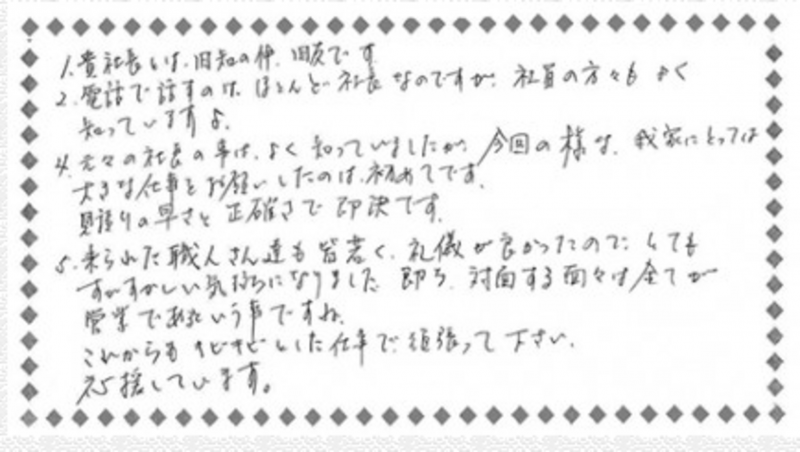 1. 貴社長とは、旧知の仲、順です
2. 電話で話すのは、ほとんど社長なのですが、社員の方々もよく
知っていますよ。
4. 元々の社長の事は、よく知っていましたが、今回の様な、我家にとっては
大きな仕事をお願いしたのは、初めてです。
見積りの早さと正確さで即決です。
5. 来られた職人さん達も皆若く、礼儀が良かったので、とても
すがすがしい気持ちになりました。即ち、対面する面々は全てが
営業であるという事ですね。
これからもキビキビとした仕事で、頑張って下さい。
応援しています。